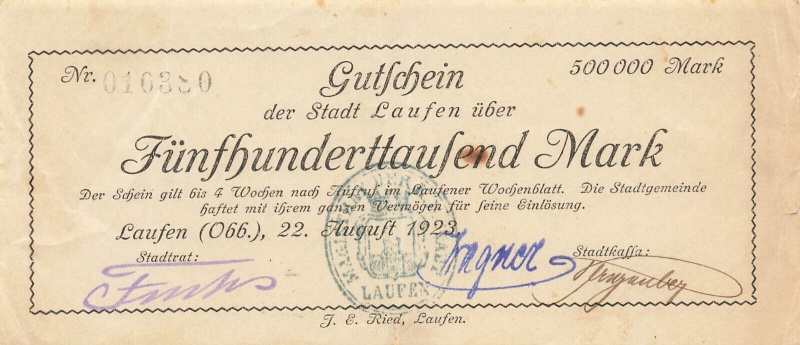 Nr. 016380
Gutſchein
500 000 Mark
der Stadt Laufen über
Fünfhunderttauſend Mark
Der Schein gilt bis 4 Wochen nach Aufruf im Laufener Wochenblatt. Die Stadtgemeinde
haftet mit ihrem ganzen Vermögen für ſeine Einlöſung.
Laufen (Obb.), 22. Auguſt 1923.
Stadtrat:
Stadtkaſſa:
Fuchs
Wagner
LAUFEN
J. E. Ried, Laufen.